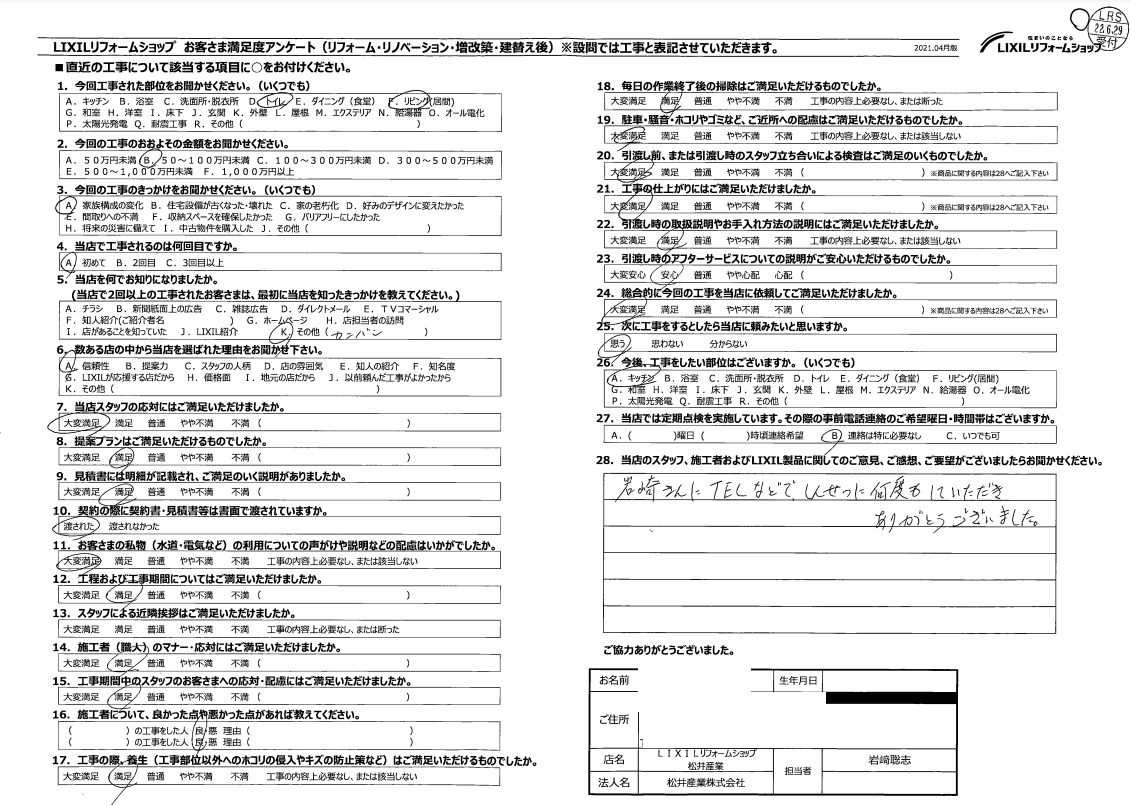 LIXILリフォームショップ お客さま満足度アンケート（リフォーム・リノベーション・増改築・建替え後）※設問では工事と表記させていただきます。
2021.04月版
住まいのことなら
LIXILリフォームショップ
LRS
22.6.29
受付
■直近の工事について該当する項目に○をお付けください。
1．今回工事された部位をお聞かせください。（いくつでも）
A．キッチン B．浴室 C．洗面所・脱衣所 D．トイレ E．ダイニング（食堂） F．リビング(居間)
G．和室 H．洋室 I．床下 J．玄関 K．外壁 L．屋根 M．エクステリア N．給湯器 O．オール電化
P．太陽光発電 Q．耐震工事 R．その他（ ）
2．今回の工事のおおよその金額をお聞かせください。
A．50万円未満 B．50～100万円未満 C．100～300万円未満 D．300～500万円未満
E．500～1,000万円未満 F．1,000万円以上
3．今回の工事のきっかけをお聞かせください。（いくつでも）
A．家族構成の変化 B．住宅設備が古くなった・壊れた C．家の老朽化 D．好みのデザインに変えたかった
E．間取りへの不満 F．収納スペースを確保したかった G．バリアフリーにしたかった
H．将来の災害に備えて I．中古物件を購入した J．その他（ ）
4．当店で工事されるのは何回目ですか。
A．初めて B．2回目 C．3回目以上
5．当店を何でお知りになりましたか。
(当店で2回以上の工事されたお客さまは、最初に当店を知ったきっかけを教えてください。)
A．チラシ B．新聞紙面上の広告 C．雑誌広告 D．ダイレクトメール E．TVコマーシャル
F．知人紹介(ご紹介者名 ) G．ホームページ H．店担当者の訪問
I．店があることを知っていた J．LIXIL紹介 K．その他（カンバン ）
6．数ある店の中から当店を選ばれた理由をお聞かせ下さい。
A．信頼性 B．提案力 C．スタッフの人柄 D．店の雰囲気 E．知人の紹介 F．知名度
G．LIXILが応援する店だから H．価格面 I．地元の店だから J．以前頼んだ工事がよかったから
K．その他（ ）
7．当店スタッフの応対にはご満足いただけましたか。
大変満足 満足 普通 やや不満 不満（ ）
8．提案プランはご満足いただけるものでしたか。
大変満足 満足 普通 やや不満 不満（ ）
9．見積書には明細が記載され、ご満足のいく説明がありましたか。
大変満足 満足 普通 やや不満 不満（ ）
10．契約の際に契約書・見積書等は書面で渡されていますか。
渡された 渡されなかった
11．お客さまの私物（水道・電気など）の利用についての声がけや説明などの配慮はいかがでしたか。
大変満足 満足 普通 やや不満 不満 工事の内容上必要なし、または該当しない
12．工程および工事期間についてはご満足いただけましたか。
大変満足 満足 普通 やや不満 不満（ ）
13．スタッフによる近隣挨拶はご満足いただけましたか。
大変満足 満足 普通 やや不満 不満 工事の内容上必要なし、または断った
14．施工者（職人）のマナー・応対にはご満足いただけましたか。
大変満足 満足 普通 やや不満 不満（ ）
15．工事期間中のスタッフのお客さまへの応対・配慮にはご満足いただけましたか。
大変満足 満足 普通 やや不満 不満（ ）
16．施工者について、良かった点や悪かった点があれば教えてください。
（ ）の工事をした人 良・悪 理由（ ）
（ ）の工事をした人 良・悪 理由（ ）
17．工事の際、養生（工事部位以外へのホコリの侵入やキズの防止策など）はご満足いただけるものでしたか。
大変満足 満足 普通 やや不満 不満 工事の内容上必要なし、または該当しない
18．毎日の作業終了後の掃除はご満足いただけるものでしたか。
大変満足 満足 普通 やや不満 不満 工事の内容上必要なし、または断った
19．駐車・騒音・ホコリやゴミなど、ご近所への配慮はご満足いただけるものでしたか。
大変満足 満足 普通 やや不満 不満 工事の内容上必要なし、または該当しない
20．引渡し前、または引渡し時のスタッフ立ち合いによる検査はご満足のいくものでしたか。
大変満足 満足 普通 やや不満 不満（ ）※商品に関する内容は28へご記入下さい
21．工事の仕上がりにはご満足いただけましたか。
大変満足 満足 普通 やや不満 不満（ ）※商品に関する内容は28へご記入下さい
22．引渡し時の取扱説明やお手入れ方法の説明にはご満足いただけましたか。
大変満足 満足 普通 やや不満 不満 工事の内容上必要なし、または該当しない
23．引渡し時のアフターサービスについての説明がご安心いただけるものでしたか。
大変安心 安心 普通 やや心配 心配（ ）
24．総合的に今回の工事を当店に依頼してご満足いただけましたか。
大変満足 満足 普通 やや不満 不満（ ）※商品に関する内容は28へご記入下さい
25．次に工事をするとしたら当店に頼みたいと思いますか。
思う 思わない 分からない
26．今後、工事をしたい部位はございますか。（いくつでも）
A．キッチン B．浴室 C．洗面所・脱衣所 D．トイレ E．ダイニング（食堂） F．リビング(居間)
G．和室 H．洋室 I．床下 J．玄関 K．外壁 L．屋根 M．エクステリア N．給湯器 O．オール電化
P．太陽光発電 Q．耐震工事 R．その他（ ）
27．当店では定期点検を実施しています。その際の事前電話連絡のご希望曜日・時間帯はございますか。
A．（ ）曜日（ ）時頃連絡希望 B．連絡は特に必要なし C．いつでも可
28．当店のスタッフ、施工者およびLIXIL製品に関してのご意見、ご感想、ご要望がございましたらお聞かせください。
岩崎さんにTELなどでしんせつに何度もしていただき
ありがとうございました。
ご協力ありがとうございました。
お名前 生年月日
ご住所
店名 LIXILリフォームショップ 松井産業 担当者 岩﨑聡志
法人名 松井産業株式会社